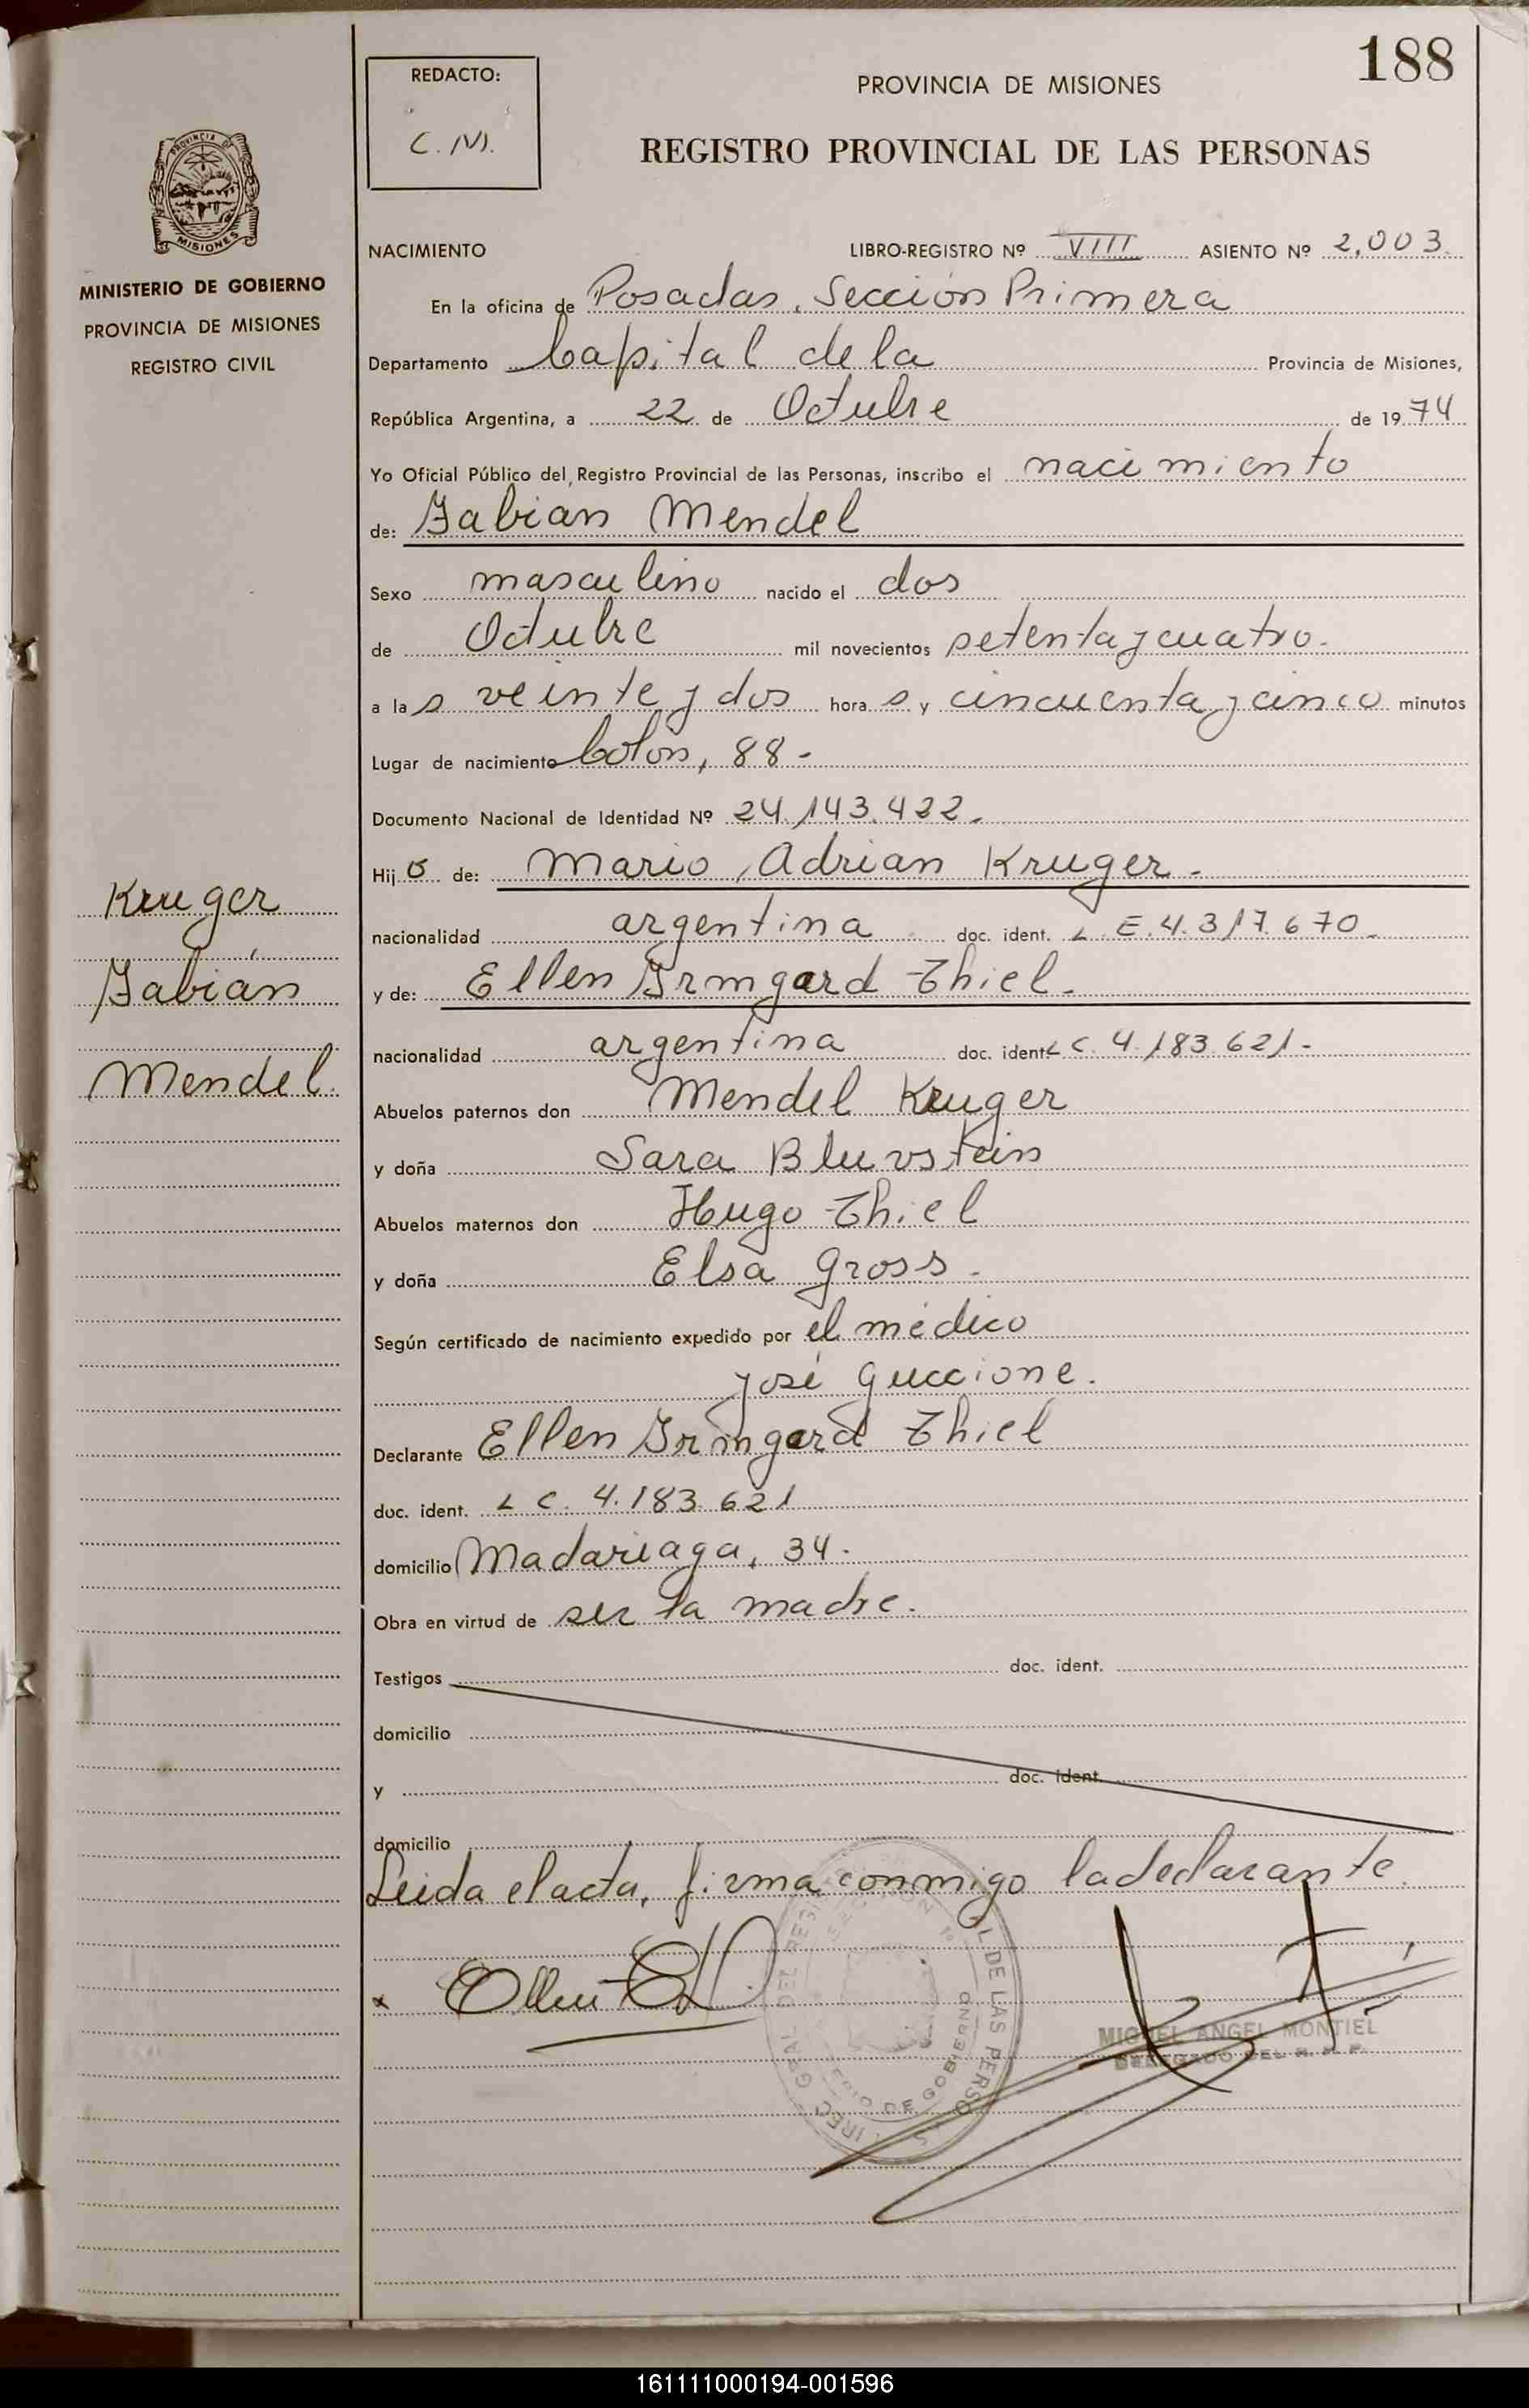 188
REDACTO:
C. M.
PROVINCIA DE MISIONES
REGISTRO PROVINCIAL DE LAS PERSONAS
MISIONES
MINISTERIO DE GOBIERNO
PROVINCIA DE MISIONES
REGISTRO CIVIL
NACIMIENTO LIBRO-REGISTRO Nº VIII ASIENTO Nº 2.003.
En la oficina de Posadas, Sección Primera
Departamento Capital de la Provincia de Misiones,
República Argentina, a 22 de Octubre de 1974
Yo Oficial Público del Registro Provincial de las Personas, inscribo el nacimiento
de: Fabian Mendel
Sexo masculino nacido el dos
de Octubre mil novecientos setenta y cuatro.
a las veinte y dos horas y cincuenta y cinco minutos
Lugar de nacimiento Colón, 88-
Documento Nacional de Identidad Nº 24.143.422.
Hijo de: Mario Adrian Kruger.
nacionalidad argentina doc. ident. L.E. 4.317.670.
y de: Ellen Irmgard Thiel.
nacionalidad argentina doc. ident L C. 4.183.621-
Abuelos paternos don Mendel Kruger
y doña Sara Bluvstein
Abuelos maternos don Hugo Thiel
y doña Elsa Gross.
Según certificado de nacimiento expedido por el médico
José Guccione.
Declarante Ellen Irmgard Thiel
doc. ident. L C. 4.183.621
domicilio Madariaga, 34.
Obra en virtud de ser la madre.
Testigos doc. ident.
domicilio
y doc. ident.
domicilio
Leida el acta, firma conmigo la declarante.
Kruger
Fabián
Mendel.
x Ellen
MIGUEL ANGEL MONTIEL
DELEGADO DEL R. P. P.
161111000194-001596